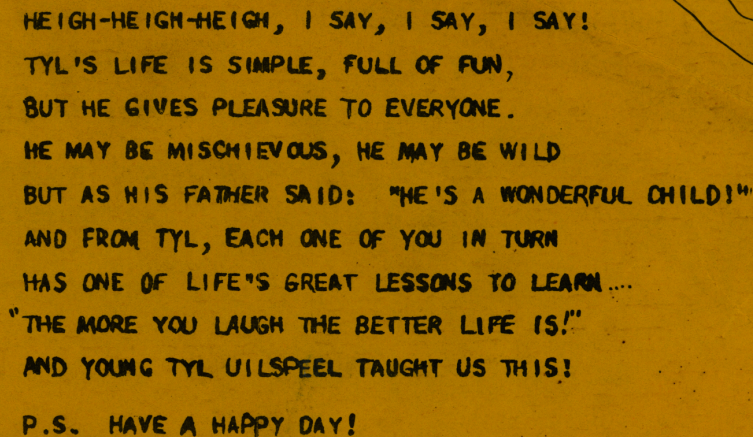 HEIGH-HEIGH-HEIGH, I SAY, I SAY, I SAY!
TYL'S LIFE IS SIMPLE, FULL OF FUN,
BUT HE GIVES PLEASURE TO EVERYONE.
HE MAY BE MISCHIEVOUS, HE MAY BE WILD
BUT AS HIS FATHER SAID: "HE'S A WONDERFUL CHILD!"
AND FROM TYL, EACH ONE OF YOU IN TURN
HAS ONE OF LIFE"S GREAT LESSONS TO LEARN....
"THE MORE YOU LAUGH THE BETTER LIFE IS!"
AND YOUNG TYL UILSPEEL TAUGHT US THIS!
P.S. HAVE A HAPPY DAY!